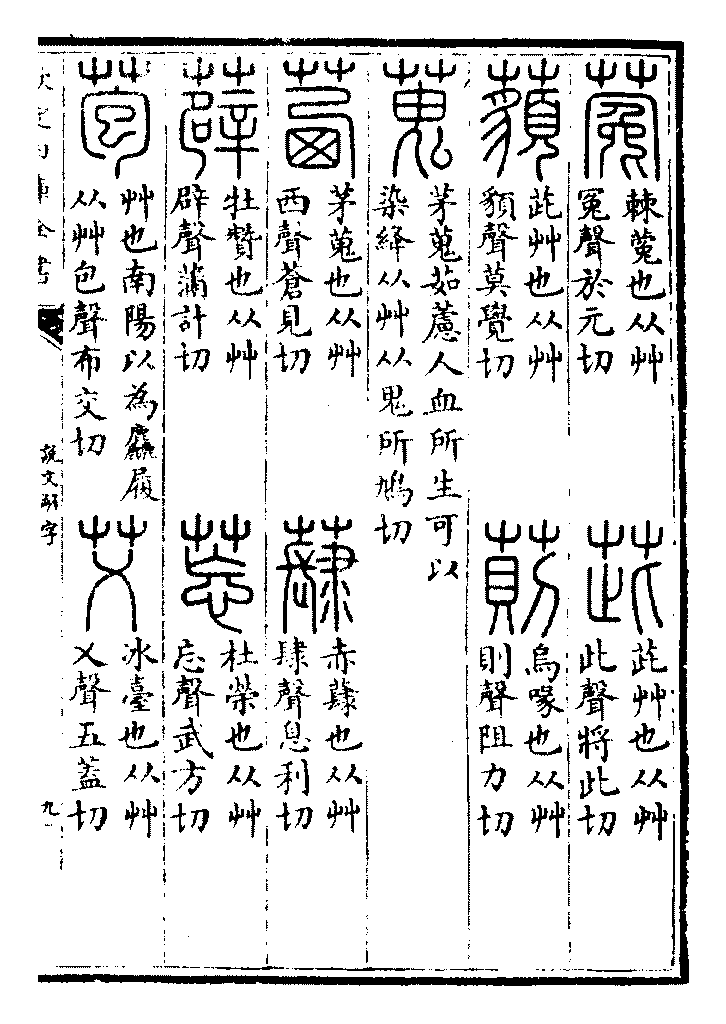 蒬
棘蒬也从艸
冤聲於元切
茈
茈艸也从艸
此聲將此切
藐
茈艸也从艸
貌聲莫覺切
萴
烏喙也从艸
則聲阻力切
蒐
茅蒐茹藘人血所生可以
染絳从艸从鬼所鳩切
茜
茅蒐也从艸
西聲蒼見切
蕼
赤蕼也从艸
肆聲息利切
薜
牡贊也从艸
辟聲蒲計切
莣
杜榮也从艸
忘聲武方切
苞
艸也南陽以為麤履
从艸包聲布交切
艾
冰臺也从艸
乂聲五蓋切
欽定四庫全書
說文解字
九